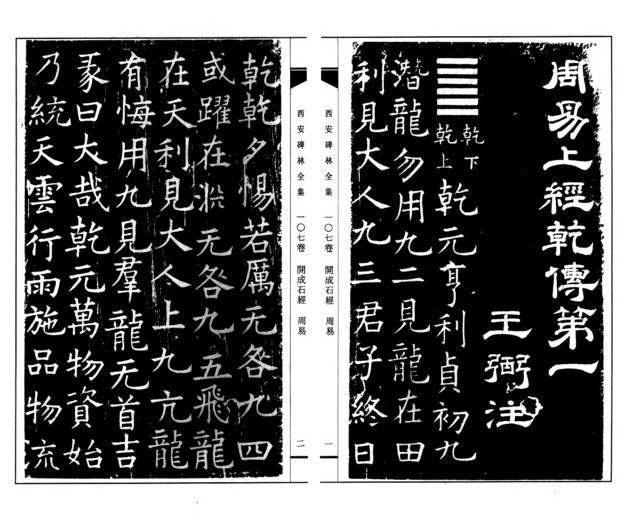 周易上經乾傳第一
王弼注
乾下
乾上
乾元亨利貞初九
潛龍勿用九二見龍在田
利見大人九三君子終日
西安碑林全集 一〇七卷 開成石經 周易
一
西安碑林全集 一〇七卷 開成石經 周易
二
乾乾夕惕若厲无咎九四
或躍在淵无咎九五飛龍
在天利見大人上九亢龍
有悔用九見羣龍无首吉
彖曰大哉乾元萬物資始
乃統天雲行雨施品物流